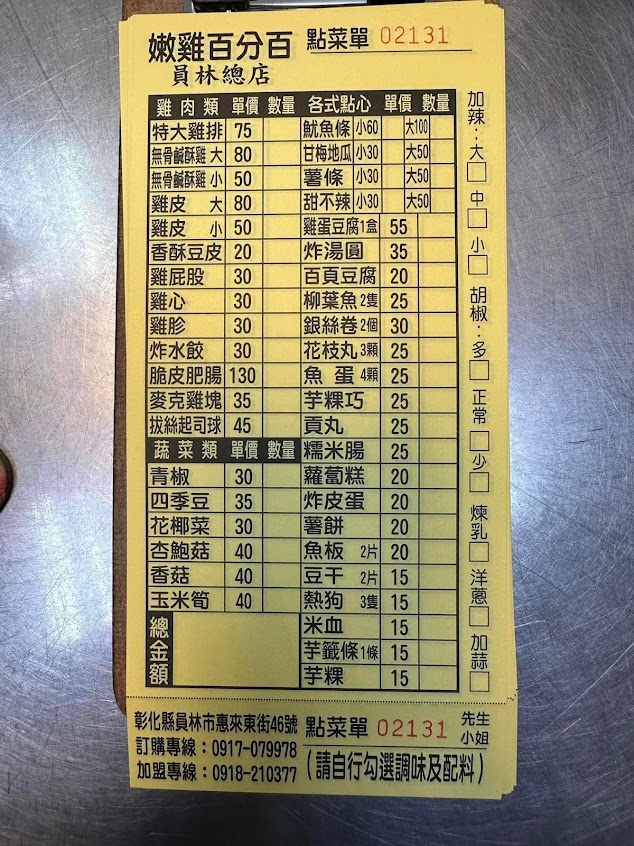 嫩雞百分百 點菜單 02131
員林總店
雞肉類 單價 數量 各式點心 單價 數量
特大雞排 75 魷魚條 小60 大100
無骨鹹酥雞 大 80 甘梅地瓜 小30 大50
無骨鹹酥雞 小 50 薯條 小30 大50
雞皮 大 80 甜不辣 小30 大50
雞皮 小 50 雞蛋豆腐1盒 55
香酥豆皮 20 炸湯圓 35
雞屁股 30 百頁豆腐 20
雞心 30 柳葉魚2隻 25
雞胗 30 銀絲卷2個 30
炸水餃 30 花枝丸3顆 25
脆皮肥腸 130 魚蛋 4顆 25
麥克雞塊 35 芋粿巧 25
拔絲起司球 45 貢丸 25
蔬菜類 單價 數量 糯米腸 25
青椒 30 蘿蔔糕 20
四季豆 35 炸皮蛋 20
花椰菜 30 薯餅 20
杏鮑菇 40 魚板 2片 20
香菇 40 豆干 2片 15
玉米筍 40 熱狗 3隻 15
總金額 米血 15
芋籤條1條 15
芋粿 15
加辣：大 中 小
胡椒：多 正常 少
煉乳
洋蔥
加蒜
彰化縣員林市惠來東街46號 點菜單 02131 先生
小姐
訂購專線：0917-079978
加盟專線：0918-210377 (請自行勾選調味及配料)